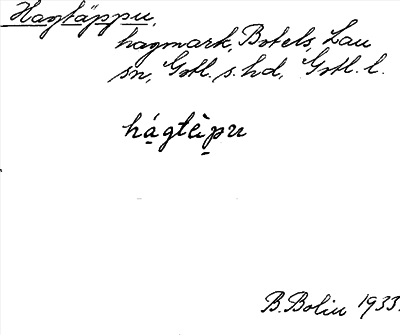 Hagtäppu,
hagmark, Botels, Lau
sn, Gotl. s. hd, Gotl. l.
há̱gtèp̣u
B. Bolin 1933.